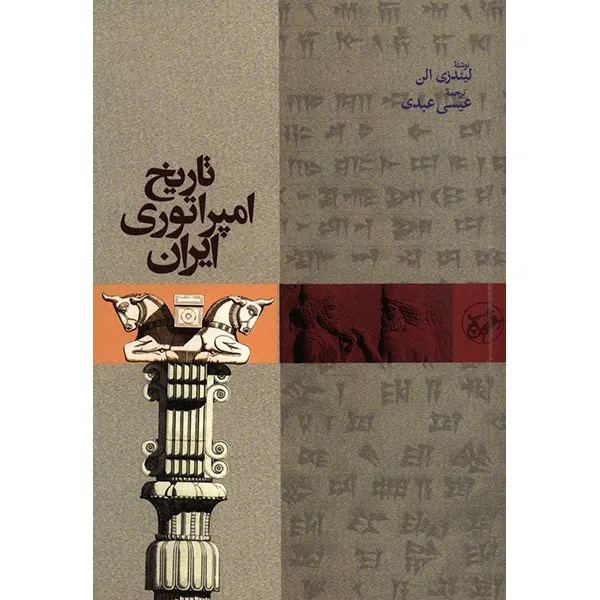 نوشتهٔ
لیندزی الن
ترجمهٔ
عیسی عبدی
تاریخ
امپراتوری
ایران